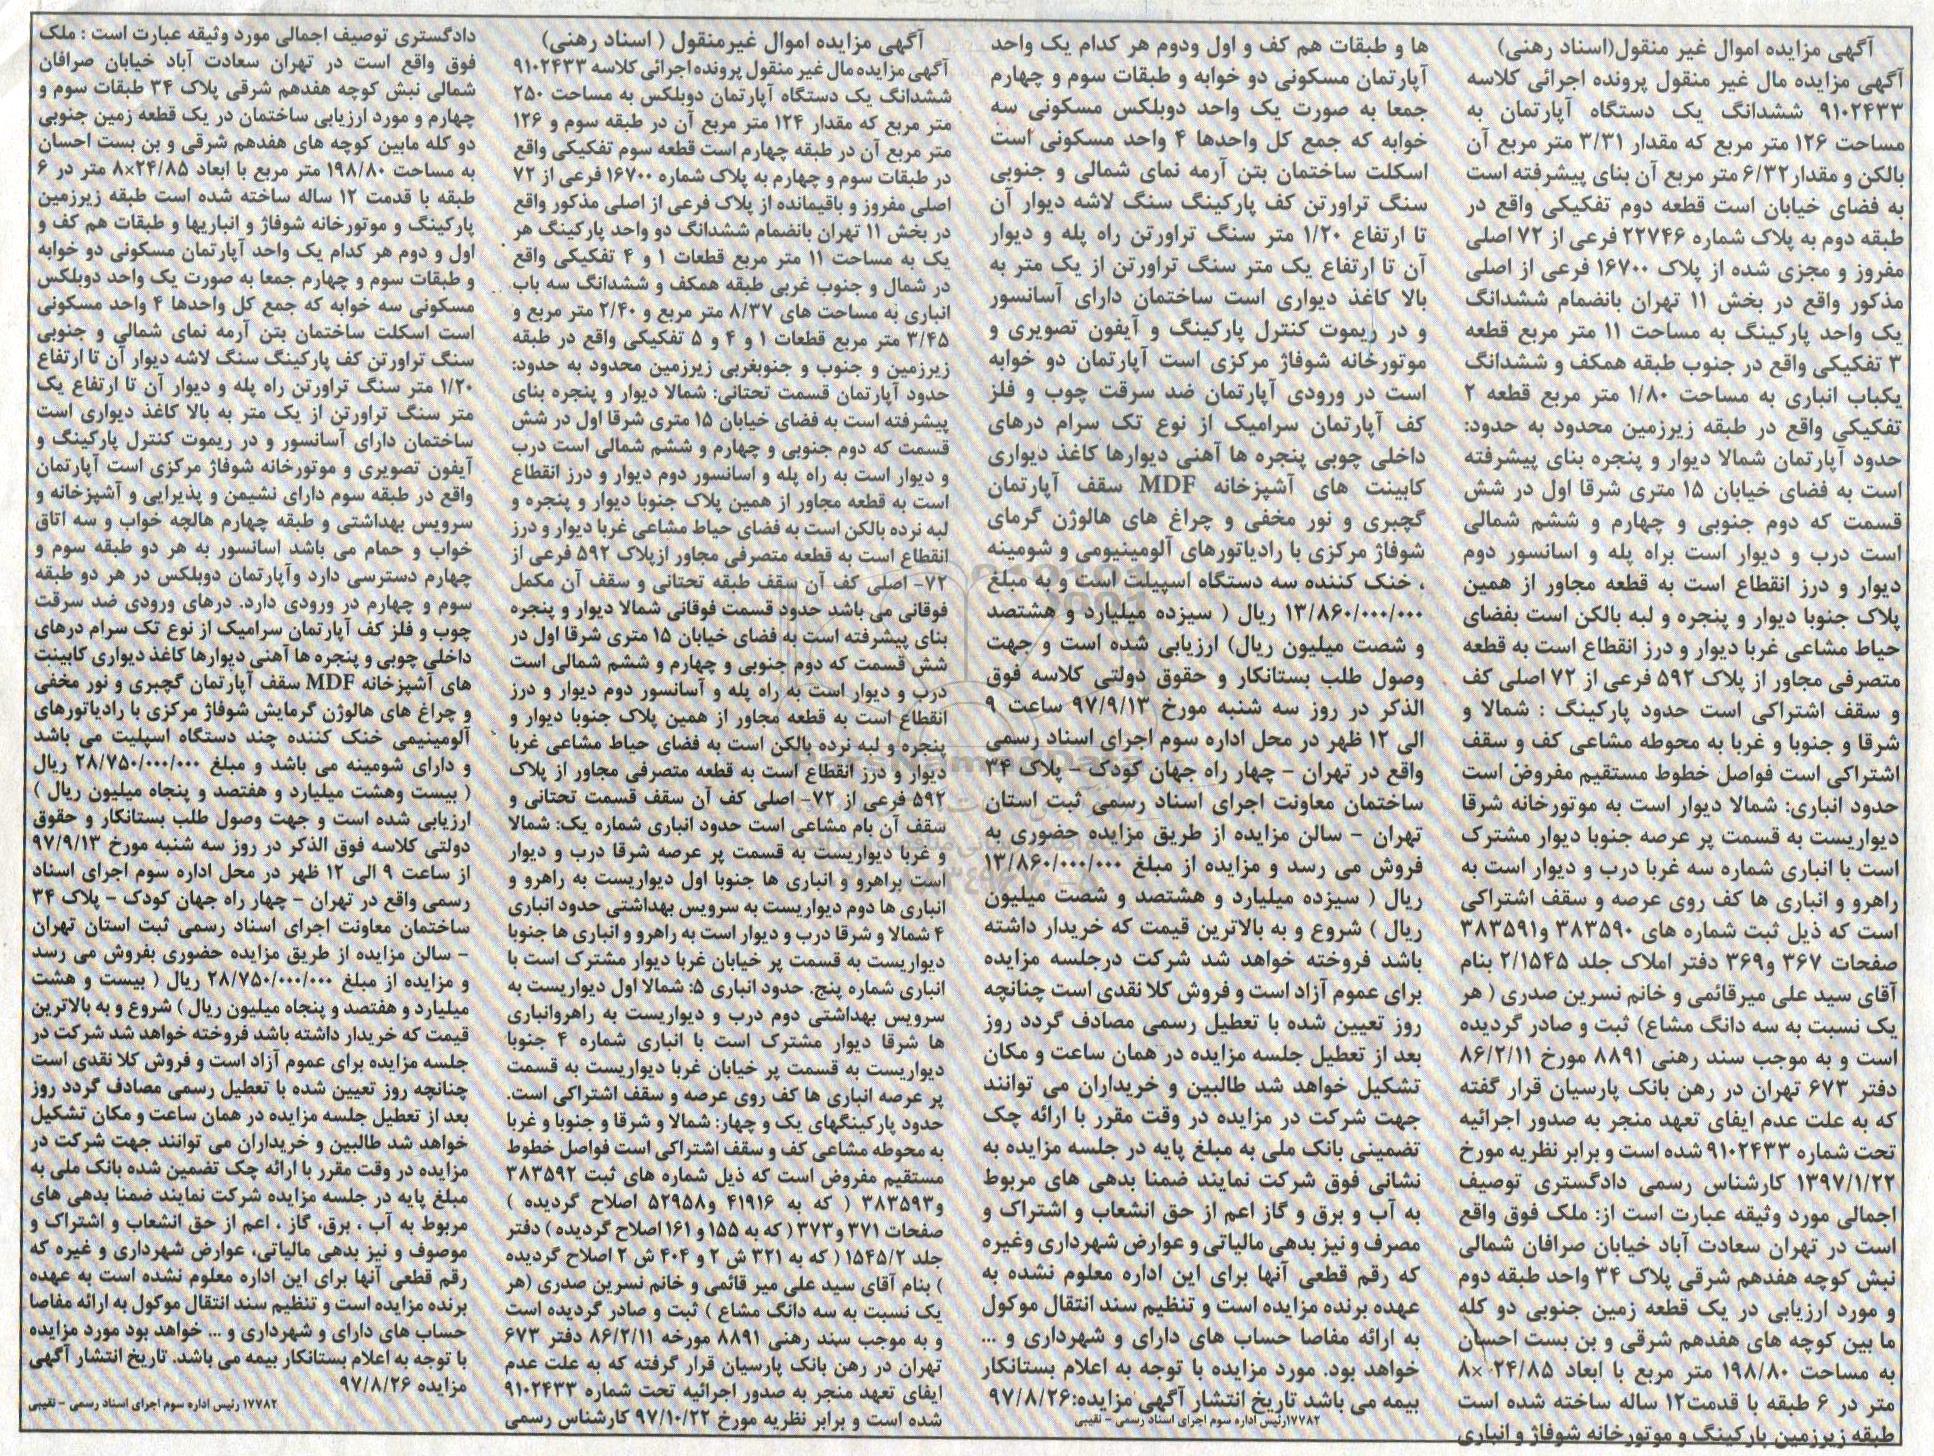 آگهی مزایده اموال غیر منقول(اسناد رهنی)
آگهی مزایده مال غیر منقول پرونده اجرائی کلاسه
۹۱۰۲۴۳۳ ششدانگ یک دستگاه آپارتمان به
مساحت ۱۲۶ متر مربع که مقدار ۳/۳۱ متر مربع آن
بالکن و مقدار ۶/۳۲ متر مربع آن بنای پیشرفته است
به فضای خیابان است قطعه دوم تفکیکی واقع در
طبقه دوم به پلاک شماره ۲۲۷۴۶ فرعی از ۷۲ اصلی
مفروز و مجزی شده از پلاک ۱۶۷۰۰ فرعی از اصلی
مذکور واقع در بخش ۱۱ تهران بانضمام ششدانگ
یک واحد پارکینگ به مساحت ۱۱ متر مربع قطعه
۳ تفکیکی واقع در جنوب طبقه همکف و ششدانگ
یکباب انباری به مساحت ۱/۸۰ متر مربع قطعه ۲
تفکیکی واقع در طبقه زیرزمین محدود به حدود:
حدود آپارتمان شمالا دیوار و پنجره بنای پیشرفته
است به فضای خیابان ۱۵ متری شرقا اول در شش
قسمت که دوم جنوبی و چهارم و ششم شمالی
است درب و دیوار است براه پله و اسانسور دوم
دیوار و درز انقطاع است به قطعه مجاور از همین
پلاک جنوبا دیوار و پنجره و لبه بالکن است بفضای
حیاط مشاعی غربا دیوار و درز انقطاع است به قطعه
متصرفی مجاور از پلاک ۵۹۲ فرعی از ۷۲ اصلی کف
و سقف اشتراکی است حدود پارکینگ : شمالا و
شرقا و جنوبا و غربا به محوطه مشاعی کف و سقف
اشتراکی است فواصل خطوط مستقیم مفروض است
حدود انباری: شمالا دیوار است به موتورخانه شرقا
دیواریست به قسمت پر عرصه جنوبا دیوار مشترک
است با انباری شماره سه غربا درب و دیوار است به
راهرو و انباری ها کف روی عرصه و سقف اشتراکی
است که ذیل ثبت شماره های ۳۸۳۵۹۰ و۳۸۳۵۹۱
صفحات ۳۶۷ و۳۶۹ دفتر املاک جلد ۲/۱۵۴۵ بنام
آقای سید علی میرقائمی و خانم نسرین صدری ( هر
یک نسبت به سه دانگ مشاع) ثبت و صادر گردیده
است و به موجب سند رهنی ۸۸۹۱ مورخ ۸۶/۲/۱۱
دفتر ۶۷۳ تهران در رهن بانک پارسیان قرار گفته
که به علت عدم ایفای تعهد منجر به صدور اجرائیه
تحت شماره ۹۱۰۲۴۳۳ شده است و برابر نظریه مورخ
۱۳۹۷/۱/۲۲ کارشناس رسمی دادگستری توصیف
اجمالی مورد وثیقه عبارت است از: ملک فوق واقع
است در تهران سعادت آباد خیابان صرافان شمالی
نبش کوچه هفدهم شرقی پلاک ۳۴ واحد طبقه دوم
و مورد ارزیابی در یک قطعه زمین جنوبی دو کله
ما بین کوچه های هفدهم شرقی و بن بست احسان
به مساحت ۱۹۸/۸۰ متر مربع با ابعاد ۲۴/۸۵ ×۸
متر در ۶ طبقه با قدمت۱۲ ساله ساخته شده است
طبقه زیرزمین پارکینگ و موتورخانه شوفاژ و انباری
ها و طبقات هم کف و اول ودوم هر کدام یک واحد
آپارتمان مسکونی دو خوابه و طبقات سوم و چهارم
جمعا به صورت یک واحد دوبلکس مسکونی سه
خوابه که جمع کل واحدها ۴ واحد مسکونی است
اسکلت ساختمان بتن آرمه نمای شمالی و جنوبی
سنگ تراورتن کف پارکینگ سنگ لاشه دیوار آن
تا ارتفاع ۱/۲۰ متر سنگ تراورتن راه پله و دیوار
آن تا ارتفاع یک متر سنگ تراورتن از یک متر به
بالا کاغذ دیواری است ساختمان دارای آسانسور
و در ریموت کنترل پارکینگ و آیفون تصویری و
موتورخانه شوفاژ مرکزی است آپارتمان دو خوابه
است در ورودی آپارتمان ضد سرقت چوب و فلز
کف آپارتمان سرامیک از نوع تک سرام درهای
داخلی چوبی پنجره ها آهنی دیوارها کاغذ دیواری
کابینت های آشپزخانه MDF سقف آپارتمان
گچبری و نور مخفی و چراغ های هالوژن گرمای
شوفاژ مرکزی با رادیاتورهای آلومینیومی و شومینه
، خنک کننده سه دستگاه اسپیلت است و به مبلغ
۱۳/۸۶۰/۰۰۰/۰۰۰ ریال ( سیزده میلیارد و هشتصد
و شصت میلیون ریال) ارزیابی شده است و جهت
وصول طلب بستانکار و حقوق دولتی کلاسه فوق
الذکر در روز سه شنبه مورخ ۹۷/۹/۱۳ ساعت ۹
الی ۱۲ ظهر در محل اداره سوم اجرای اسناد رسمی
واقع در تهران - چهار راه جهان کودک - پلاک ۳۴
ساختمان معاونت اجرای اسناد رسمی ثبت استان
تهران - سالن مزایده از طریق مزایده حضوری به
فروش می رسد و مزایده از مبلغ ۱۳/۸۶۰/۰۰۰/۰۰۰
ریال ( سیزده میلیارد و هشتصد و شصت میلیون
ریال ) شروع و به بالاترین قیمت که خریدار داشته
باشد فروخته خواهد شد شرکت درجلسه مزایده
برای عموم آزاد است و فروش کلا نقدی است چنانچه
روز تعیین شده با تعطیل رسمی مصادف گردد روز
بعد از تعطیل جلسه مزایده در همان ساعت و مکان
تشکیل خواهد شد طالبین و خریداران می توانند
جهت شرکت در مزایده در وقت مقرر با ارائه چک
تضمینی بانک ملی به مبلغ پایه در جلسه مزایده به
نشانی فوق شرکت نمایند ضمنا بدهی های مربوط
به آب و برق و گاز اعم از حق انشعاب و اشتراک و
مصرف و نیز بدهی مالیاتی و عوارض شهرداری وغیره
که رقم قطعی آنها برای این اداره معلوم نشده به
عهده برنده مزایده است و تنظیم سند انتقال موکول
به ارائه مفاصا حساب های دارای و شهرداری و ...
خواهد بود. مورد مزایده با توجه به اعلام بستانکار
بیمه می باشد تاریخ انتشار آگهی مزایده:۹۷/۸/۲۶
۱۷۷۸۲رئیس اداره سوم اجرای اسناد رسمی - نقیبی
آگهی مزایده اموال غیرمنقول ( اسناد رهنی)
آگهی مزایده مال غیر منقول پرونده اجرائی کلاسه ۹۱۰۲۴۳۳
ششدانگ یک دستگاه آپارتمان دوبلکس به مساحت ۲۵۰
متر مربع که مقدار ۱۲۴ متر مربع آن در طبقه سوم و ۱۲۶
متر مربع آن در طبقه چهارم است قطعه سوم تفکیکی واقع
در طبقات سوم و چهارم به پلاک شماره ۱۶۷۰۰ فرعی از ۷۲
اصلی مفروز و باقیمانده از پلاک فرعی از اصلی مذکور واقع
در بخش ۱۱ تهران بانضمام ششدانگ دو واحد پارکینگ هر
یک به مساحت ۱۱ متر مربع قطعات ۱ و ۴ تفکیکی واقع
در شمال و جنوب غربی طبقه همکف و ششدانگ سه باب
انباری به مساحت های ۸/۳۷ متر مربع و ۲/۴۰ متر مربع و
۳/۴۵ متر مربع قطعات ۱ و ۴ و ۵ تفکیکی واقع در طبقه
زیرزمین و جنوب و جنوبغربی زیرزمین محدود به حدود:
حدود آپارتمان قسمت تحتانی: شمالا دیوار و پنجره بنای
پیشرفته است به فضای خیابان ۱۵ متری شرقا اول در شش
قسمت که دوم جنوبی و چهارم و ششم شمالی است درب
و دیوار است به راه پله و اسانسور دوم دیوار و درز انقطاع
است به قطعه مجاور از همین پلاک جنوبا دیوار و پنجره و
لبه نرده بالکن است به فضای حیاط مشاعی غربا دیوار و درز
انقطاع است به قطعه متصرفی مجاور ازپلاک ۵۹۲ فرعی از
۷۲- اصلی کف آن سقف طبقه تحتانی و سقف آن مکمل
فوقانی می باشد حدود قسمت فوقانی شمالا دیوار و پنجره
بنای پیشرفته است به فضای خیابان ۱۵ متری شرقا اول در
شش قسمت که دوم جنوبی و چهارم و ششم شمالی است
درب و دیوار است به راه پله و آسانسور دوم دیوار و درز
انقطاع است به قطعه مجاور از همین پلاک جنوبا دیوار و
پنجره و لبه نرده بالکن است به فضای حیاط مشاعی غربا
دیوار و درز انقطاع است به قطعه متصرفی مجاور از پلاک
۵۹۲ فرعی از ۷۲- اصلی کف آن سقف قسمت تحتانی و
سقف آن بام مشاعی است حدود انباری شماره یک: شمالا
و غربا دیواریست به قسمت پر عرصه شرقا درب و دیوار
است براهرو و انباری ها جنوبا اول دیواریست به راهرو و
انباری ها دوم دیواریست به سرویس بهداشتی حدود انباری
۴ شمالا و شرقا درب و دیوار است به راهرو و انباری ها جنوبا
دیواریست به قسمت پر خیابان غربا دیوار مشترک است با
انباری شماره پنج. حدود انباری ۵: شمالا اول دیواریست به
سرویس بهداشتی دوم درب و دیواریست به راهروانباری
ها شرقا دیوار مشترک است با انباری شماره ۴ جنوبا
دیواریست به قسمت پر خیابان غربا دیواریست به قسمت
پر عرصه انباری ها کف روی عرصه و سقف اشتراکی است.
حدود پارکینگهای یک و چهار: شمالا و شرقا و جنوبا و غربا
به محوطه مشاعی کف و سقف اشتراکی است فواصل خطوط
مستقیم مفروض است که ذیل شماره های ثبت ۳۸۳۵۹۲
و۳۸۳۵۹۳ ( که به ۴۱۹۱۶ و۵۲۹۵۸ اصلاح گردیده )
صفحات ۳۷۱ و۳۷۳ ( که به ۱۵۵ و ۱۶۱ اصلاح گردیده ) دفتر
جلد ۱۵۴۵/۲ ( که به ۳۲۱ ش ۲ و ۴۰۴ ش ۲ اصلاح گردیده
) بنام آقای سید علی میر قائمی و خانم نسرین صدری (هر
یک نسبت به سه دانگ مشاع ) ثبت و صادر گردیده است
و به موجب سند رهنی ۸۸۹۱ مورخه ۸۶/۲/۱۱ دفتر ۶۷۳
تهران در رهن بانک پارسیان قرار گرفته که به علت عدم
ایفای تعهد منجر به صدور اجرائیه تحت شماره ۹۱۰۲۴۳۳
شده است و برابر نظریه مورخ ۹۷/۱۰/۲۲ کارشناس رسمی
دادگستری توصیف اجمالی مورد وثیقه عبارت است : ملک
فوق واقع است در تهران سعادت آباد خیابان صرافان
شمالی نبش کوچه هفدهم شرقی پلاک ۳۴ طبقات سوم و
چهارم و مورد ارزیابی ساختمان در یک قطعه زمین جنوبی
دو کله مابین کوچه های هفدهم شرقی و بن بست احسان
به مساحت ۱۹۸/۸۰ متر مربع با ابعاد ۲۴/۸۵×۸ متر در ۶
طبقه با قدمت ۱۲ ساله ساخته شده است طبقه زیرزمین
پارکینگ و موتورخانه شوفاژ و انباریها و طبقات هم کف و
اول و دوم هر کدام یک واحد آپارتمان مسکونی دو خوابه
و طبقات سوم و چهارم جمعا به صورت یک واحد دوبلکس
مسکونی سه خوابه که جمع کل واحدها ۴ واحد مسکونی
است اسکلت ساختمان بتن آرمه نمای شمالی و جنوبی
سنگ تراورتن کف پارکینگ سنگ لاشه دیوار آن تا ارتفاع
۱/۲۰ متر سنگ تراورتن راه پله و دیوار آن تا ارتفاع یک
متر سنگ تراورتن از یک متر به بالا کاغذ دیواری است
ساختمان دارای آسانسور و در ریموت کنترل پارکینگ و
آیفون تصویری و موتورخانه شوفاژ مرکزی است آپارتمان
واقع در طبقه سوم دارای نشیمن و پذیرایی و آشپزخانه و
سرویس بهداشتی و طبقه چهارم هالچه خواب و سه اتاق
خواب و حمام می باشد اسانسور به هر دو طبقه سوم و
چهارم دسترسی دارد وآپارتمان دوبلکس در هر دو طبقه
سوم و چهارم در ورودی دارد. درهای ورودی ضد سرقت
چوب و فلز کف آپارتمان سرامیک از نوع تک سرام درهای
داخلی چوبی و پنجره ها آهنی دیوارها کاغذ دیواری کابینت
های آشپزخانه MDF سقف آپارتمان گچبری و نور مخفی
و چراغ های هالوژن گرمایش شوفاژ مرکزی با رادیاتورهای
آلومینیمی خنک کننده چند دستگاه اسپلیت می باشد
و دارای شومینه می باشد و مبلغ ۲۸/۷۵۰/۰۰۰/۰۰۰ ریال
( بیست وهشت میلیارد و هفتصد و پنجاه میلیون ریال )
ارزیابی شده است و جهت وصول طلب بستانکار و حقوق
دولتی کلاسه فوق الذکر در روز سه شنبه مورخ ۹۷/۹/۱۳
از ساعت ۹ الی ۱۲ ظهر در محل اداره سوم اجرای اسناد
رسمی واقع در تهران - چهار راه جهان کودک - پلاک ۳۴
ساختمان معاونت اجرای اسناد رسمی ثبت استان تهران
- سالن مزایده از طریق مزایده حضوری بفروش می رسد
و مزایده از مبلغ ۲۸/۷۵۰/۰۰۰/۰۰۰ ریال ( بیست و هشت
میلیارد و هفتصد و پنجاه میلیون ریال) شروع و به بالاترین
قیمت که خریدار داشته باشد فروخته خواهد شد شرکت در
جلسه مزایده برای عموم آزاد است و فروش کلا نقدی است
چنانچه روز تعیین شده با تعطیل رسمی مصادف گردد روز
بعد از تعطیل جلسه مزایده در همان ساعت و مکان تشکیل
خواهد شد طالبین و خریداران می توانند جهت شرکت در
مزایده در وقت مقرر با ارائه چک تضمین شده بانک ملی به
مبلغ پایه در جلسه مزایده شرکت نمایند ضمنا بدهی های
مربوط به آب ، برق، گاز ، اعم از حق انشعاب و اشتراک و
موصوف و نیز بدهی مالیاتی، عوارض شهرداری و غیره که
رقم قطعی آنها برای این اداره معلوم نشده است به عهده
برنده مزایده است و تنظیم سند انتقال موکول به ارائه مفاصا
حساب های دارای و شهرداری و ... خواهد بود مورد مزایده
با توجه به اعلام بستانکار بیمه می باشد. تاریخ انتشار آگهی
مزایده ۹۷/۸/۲۶
۱۷۷۸۲ رئیس اداره سوم اجرای اسناد رسمی - نقیبی